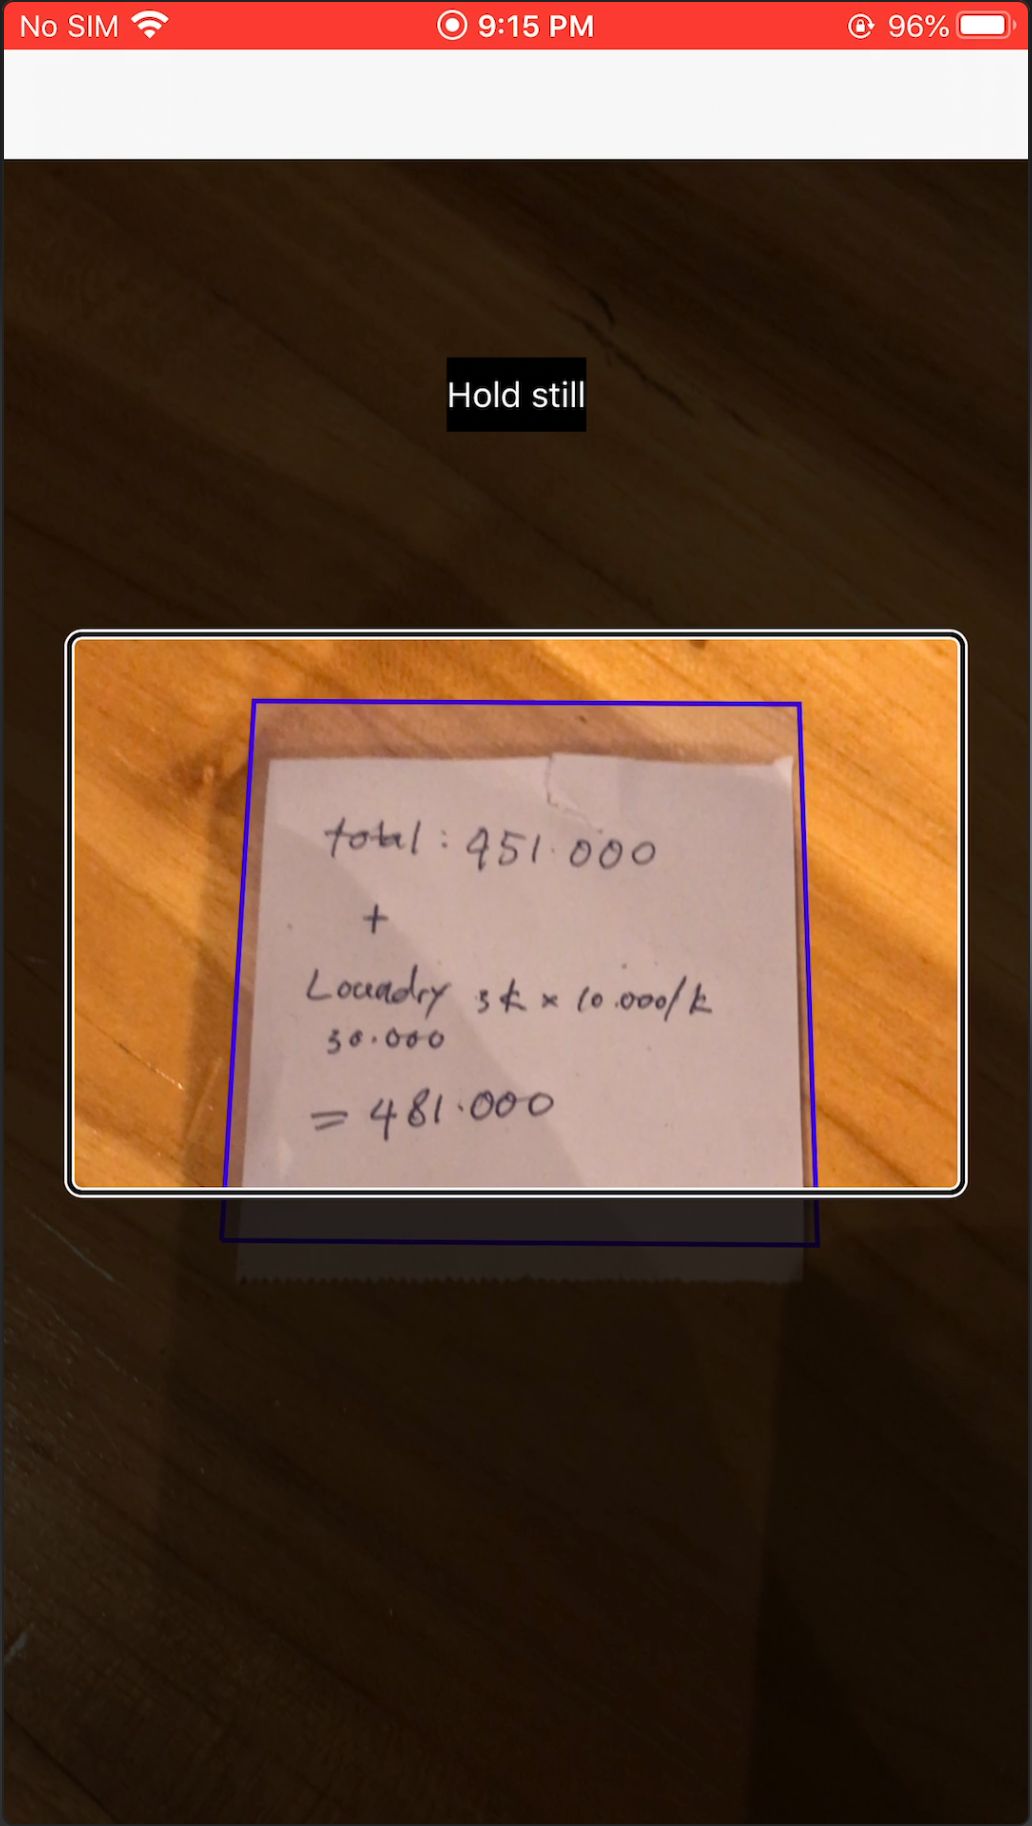 No SIM 9:15 PM 96%
Hold still
total : 451.000
+
Loundry 3k x 10.000/k
30.000
= 481.000